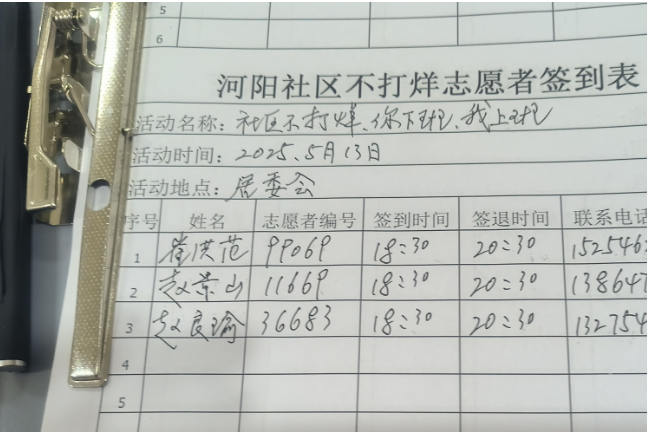 5
6
河阳社区不打烊志愿者签到表
活动名称：社区不打烊、你下班、我上班
活动时间：2025、5月13日
活动地点：居委会
序号 姓名 志愿者编号 签到时间 签退时间 联系电话
1 崔洪范 99069 18:30 20:30 152546
2 赵景山 11669 18:30 20:30 138647
3 赵良瑜 36683 18:30 20:30 132754
4
5